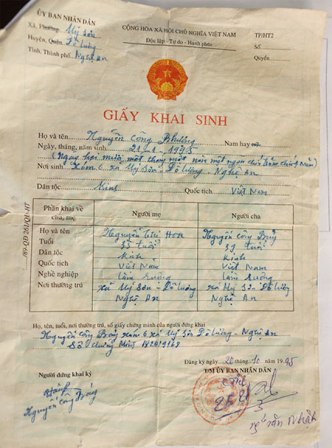 ỦY BAN NHÂN DÂN
Xã, Phường Mỹ Sơn
Huyện, Quận Đô Lương
Tỉnh, Thành phố Nghệ An
CỘNG HÒA XÃ HỘI CHỦ NGHĨA VIỆT NAM
Độc lập - Tự do - Hạnh phúc
TP/HT2
Số
Quyển
GIẤY KHAI SINH
Họ và tên Nguyễn Công Phượng Nam hay nữ
Ngày, tháng, năm sinh
Nơi sinh Xóm 6 xã Mỹ Sơn - Đô Lương - Nghệ An
Dân tộc Kinh Quốc tịch Việt Nam
Phần khai về cha, mẹ
Người mẹ
Người cha
Họ và tên Nguyễn Thị Hoa Nguyễn Công Bảy
Tuổi tuổi tuổi
Dân tộc Kinh Kinh
Quốc tịch Việt Nam Việt Nam
Nghề nghiệp Làm ruộng Làm ruộng
Nơi thường trú xã Mỹ Sơn - Đô Lương xã Mỹ Sơn Đô Lương
Nghệ An Nghệ An
Họ, tên, tuổi, nơi thường trú, số giấy chứng minh của người đứng khai
Nguyễn Công Bảy xóm 6 xã Mỹ Sơn Đô Lương - Nghệ An
Đăng ký ngày tháng năm 1995
Người đứng khai ký
T/M ỦY BAN NHÂN DÂN
Nguyễn Công Bảy